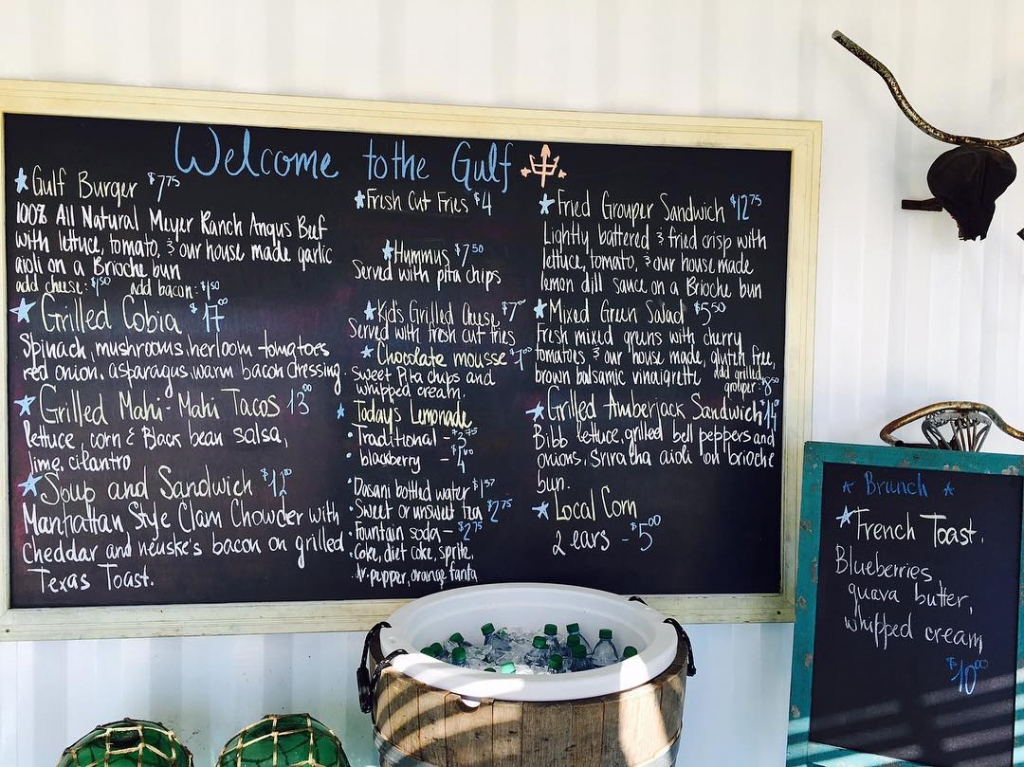 Welcome to the Gulf
Gulf Burger $7.75
100% All Natural Meyer Ranch Angus Beef
with lettuce, tomato, & our house made garlic
aioli on a Brioche bun
add cheese: $1.50 add bacon: $1.50
Grilled Cobia $17.00
Spinach, mushrooms, heirloom tomatoes
red onion, asparagus, warm bacon dressing
Grilled Mahi-Mahi Tacos 13.00
lettuce, corn & Black bean salsa,
lime, cilantro
Soup and Sandwich
Manhattan Style Clam Chowder with
cheddar and neuske's bacon on grilled
Texas Toast.
Fresh Cut Fries $4
Hummus $7.50
Served with pita chips
Kid's Grilled Cheese
Served with fresh cut fries
Chocolate mousse
Sweet Pita chips and
whipped cream.
Today's Lemonade
Traditional - $2.75
blackberry -
Dasani bottled water
Sweet or unsweet tea $2.75
Fountain soda - $2.75
Coke, diet coke, sprite,
dr. pepper, orange fanta
Fried Grouper Sandwich $12.75
Lightly battered & fried crisp with
lettuce, tomato, & our house made
lemon dill sauce on a Brioche bun
Mixed Green Salad $5.50
Fresh mixed greens with cherry
tomatoes & our house made, gluten free,
brown balsamic vinaigrette add grilled
grouper:
Grilled Amberjack Sandwich
Bibb lettuce, grilled bell peppers and
onions, Sriracha aioli on brioche
bun.
Local Corn
2 ears - $5.00
Brunch
French Toast.
Blueberries
guava butter,
whipped cream
$10.00